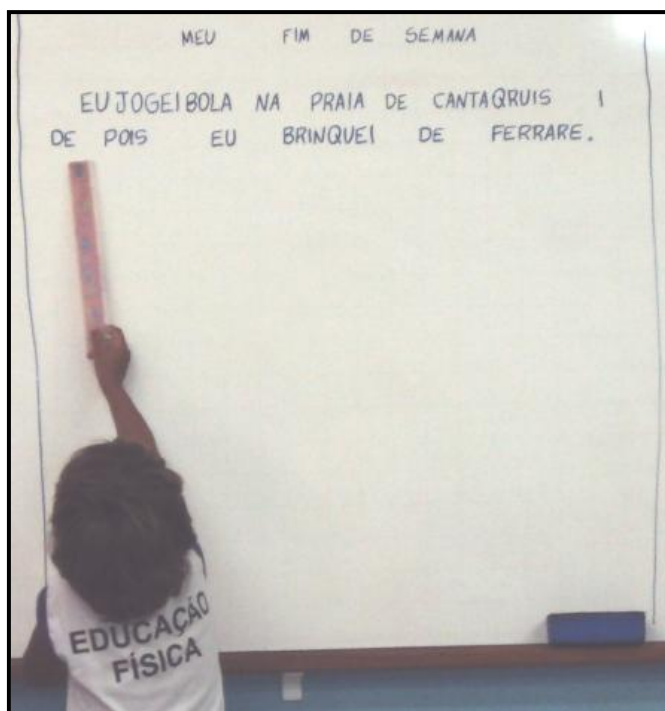 MEU FIM DE SEMANA
EU JOGEI BOLA NA PRAIA DE CANTAQRUIS I
DE POIS EU BRINQUEI DE FERRARE.
EDUCAÇÃO
FÍSICA